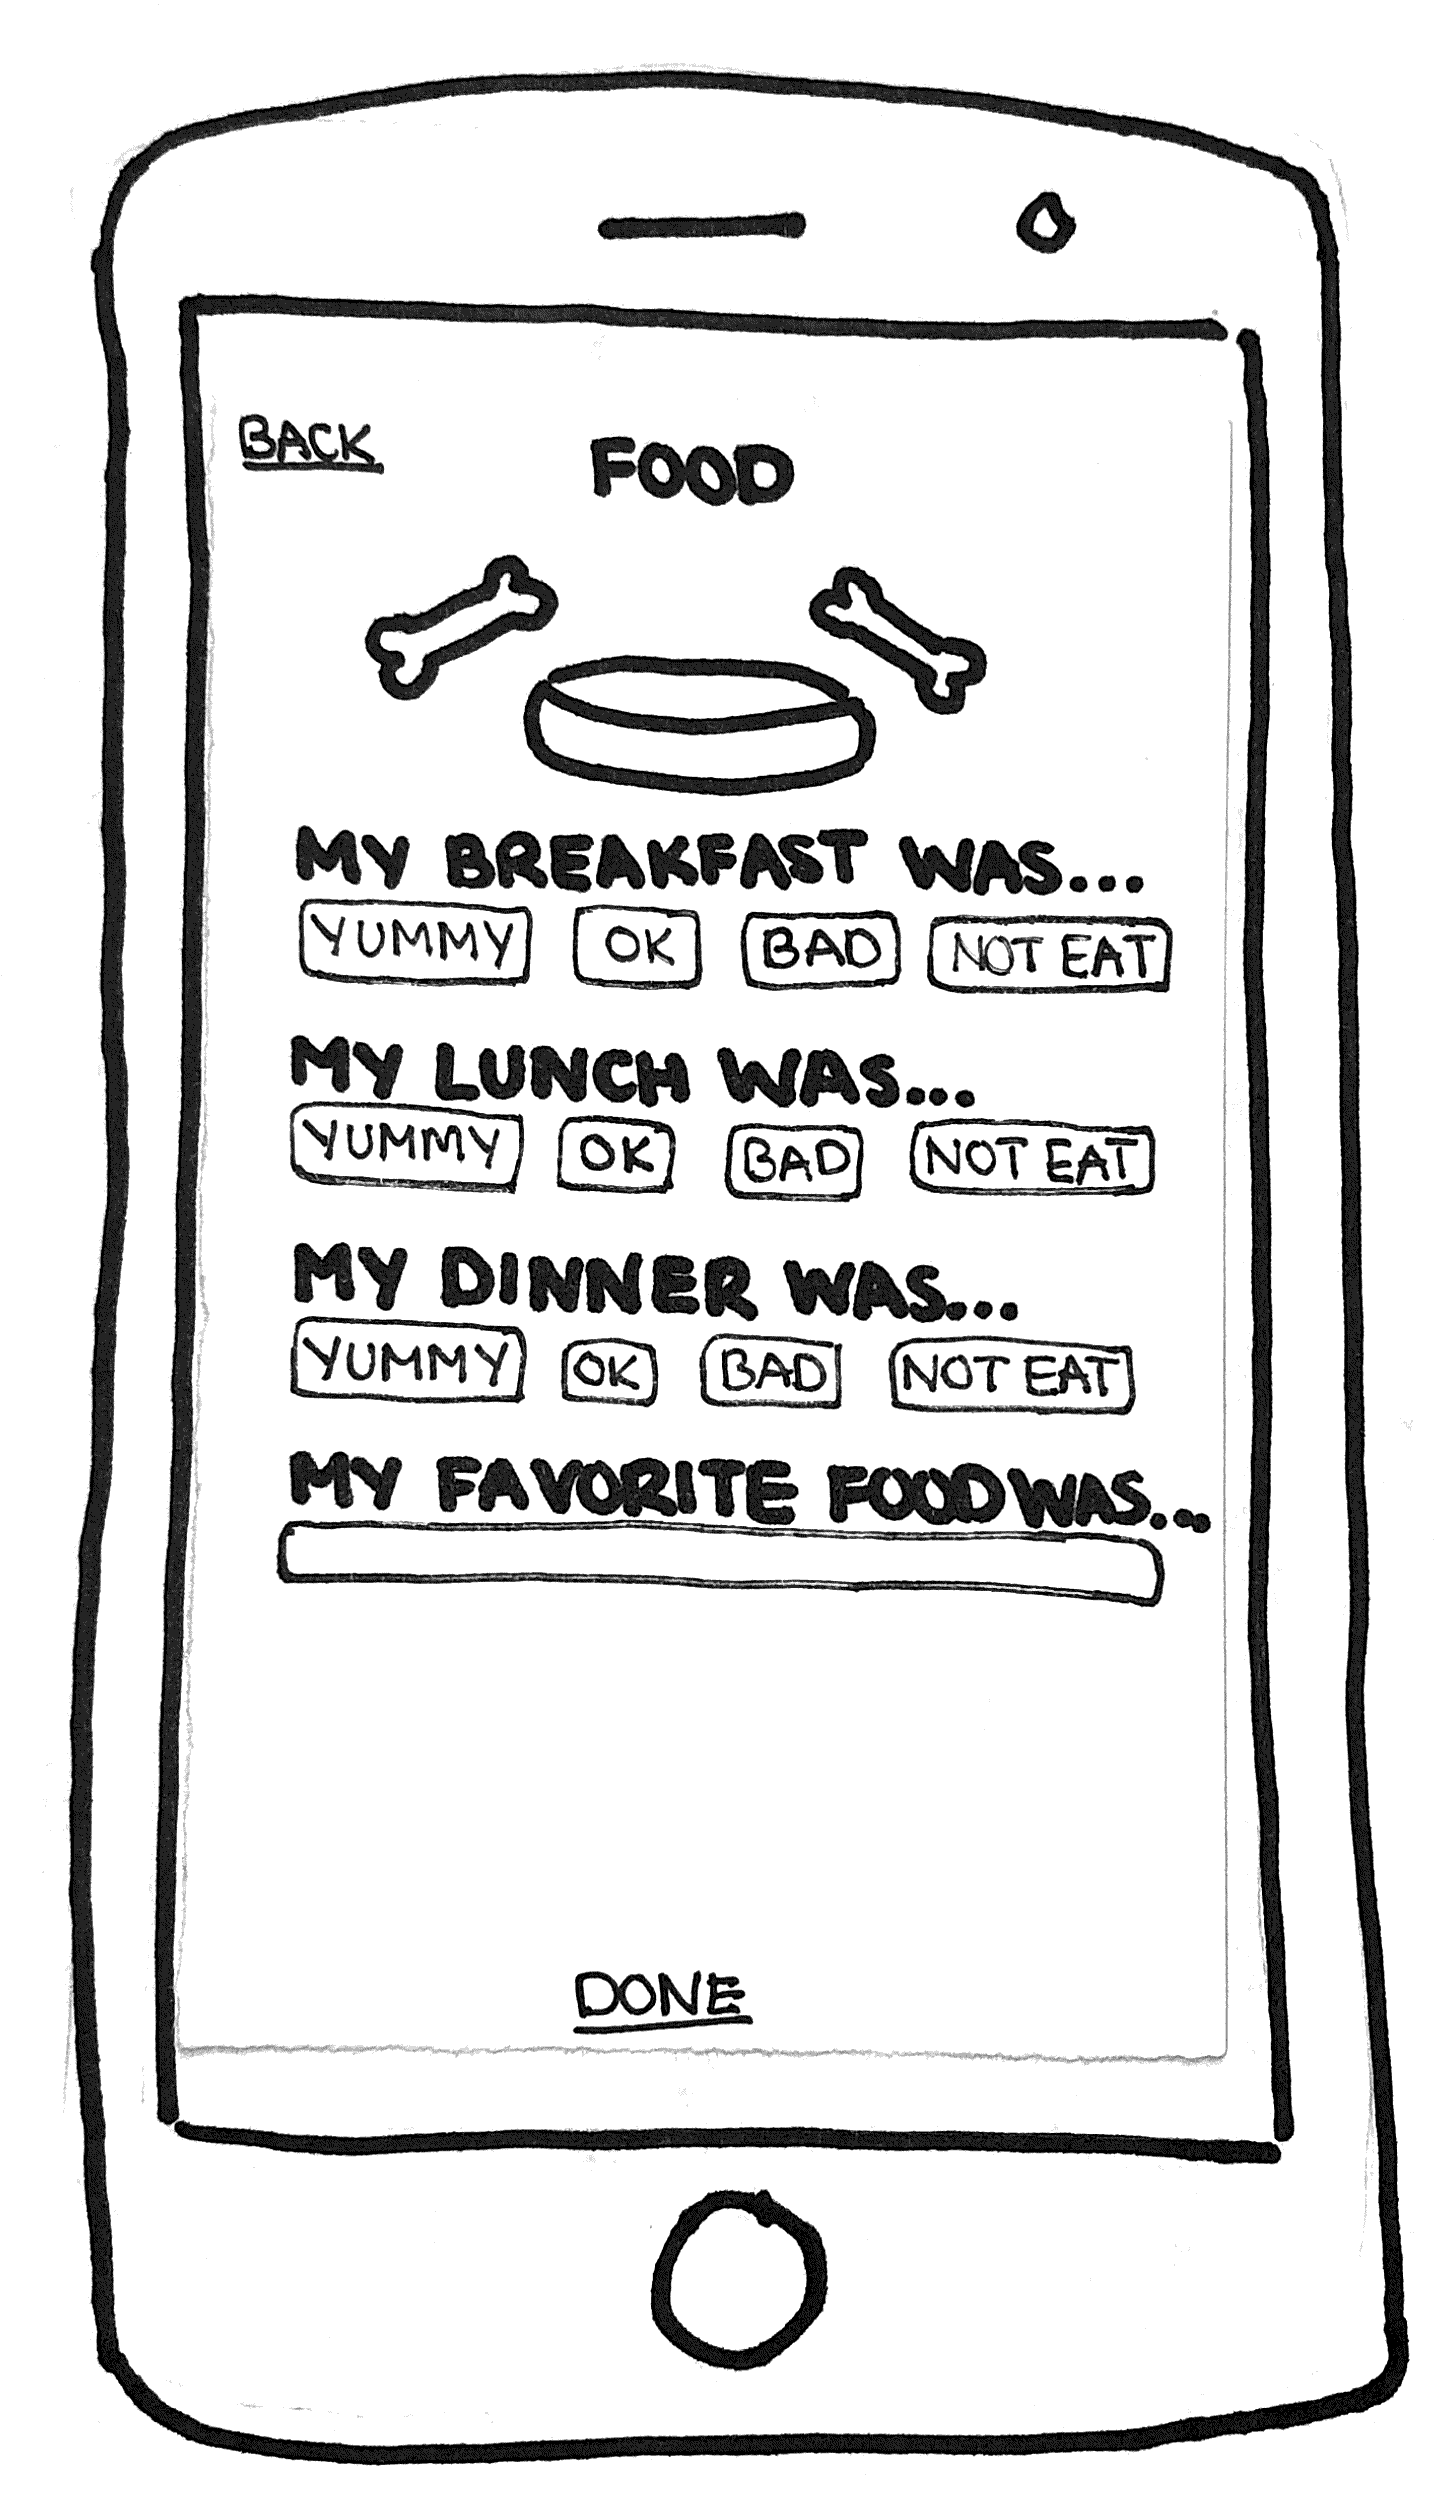 BACK
FOOD
MY BREAKFAST WAS...
YUMMY OK BAD NOT EAT
MY LUNCH WAS...
YUMMY OK BAD NOT EAT
MY DINNER WAS...
YUMMY OK BAD NOT EAT
MY FAVORITE FOOD WAS...
DONE